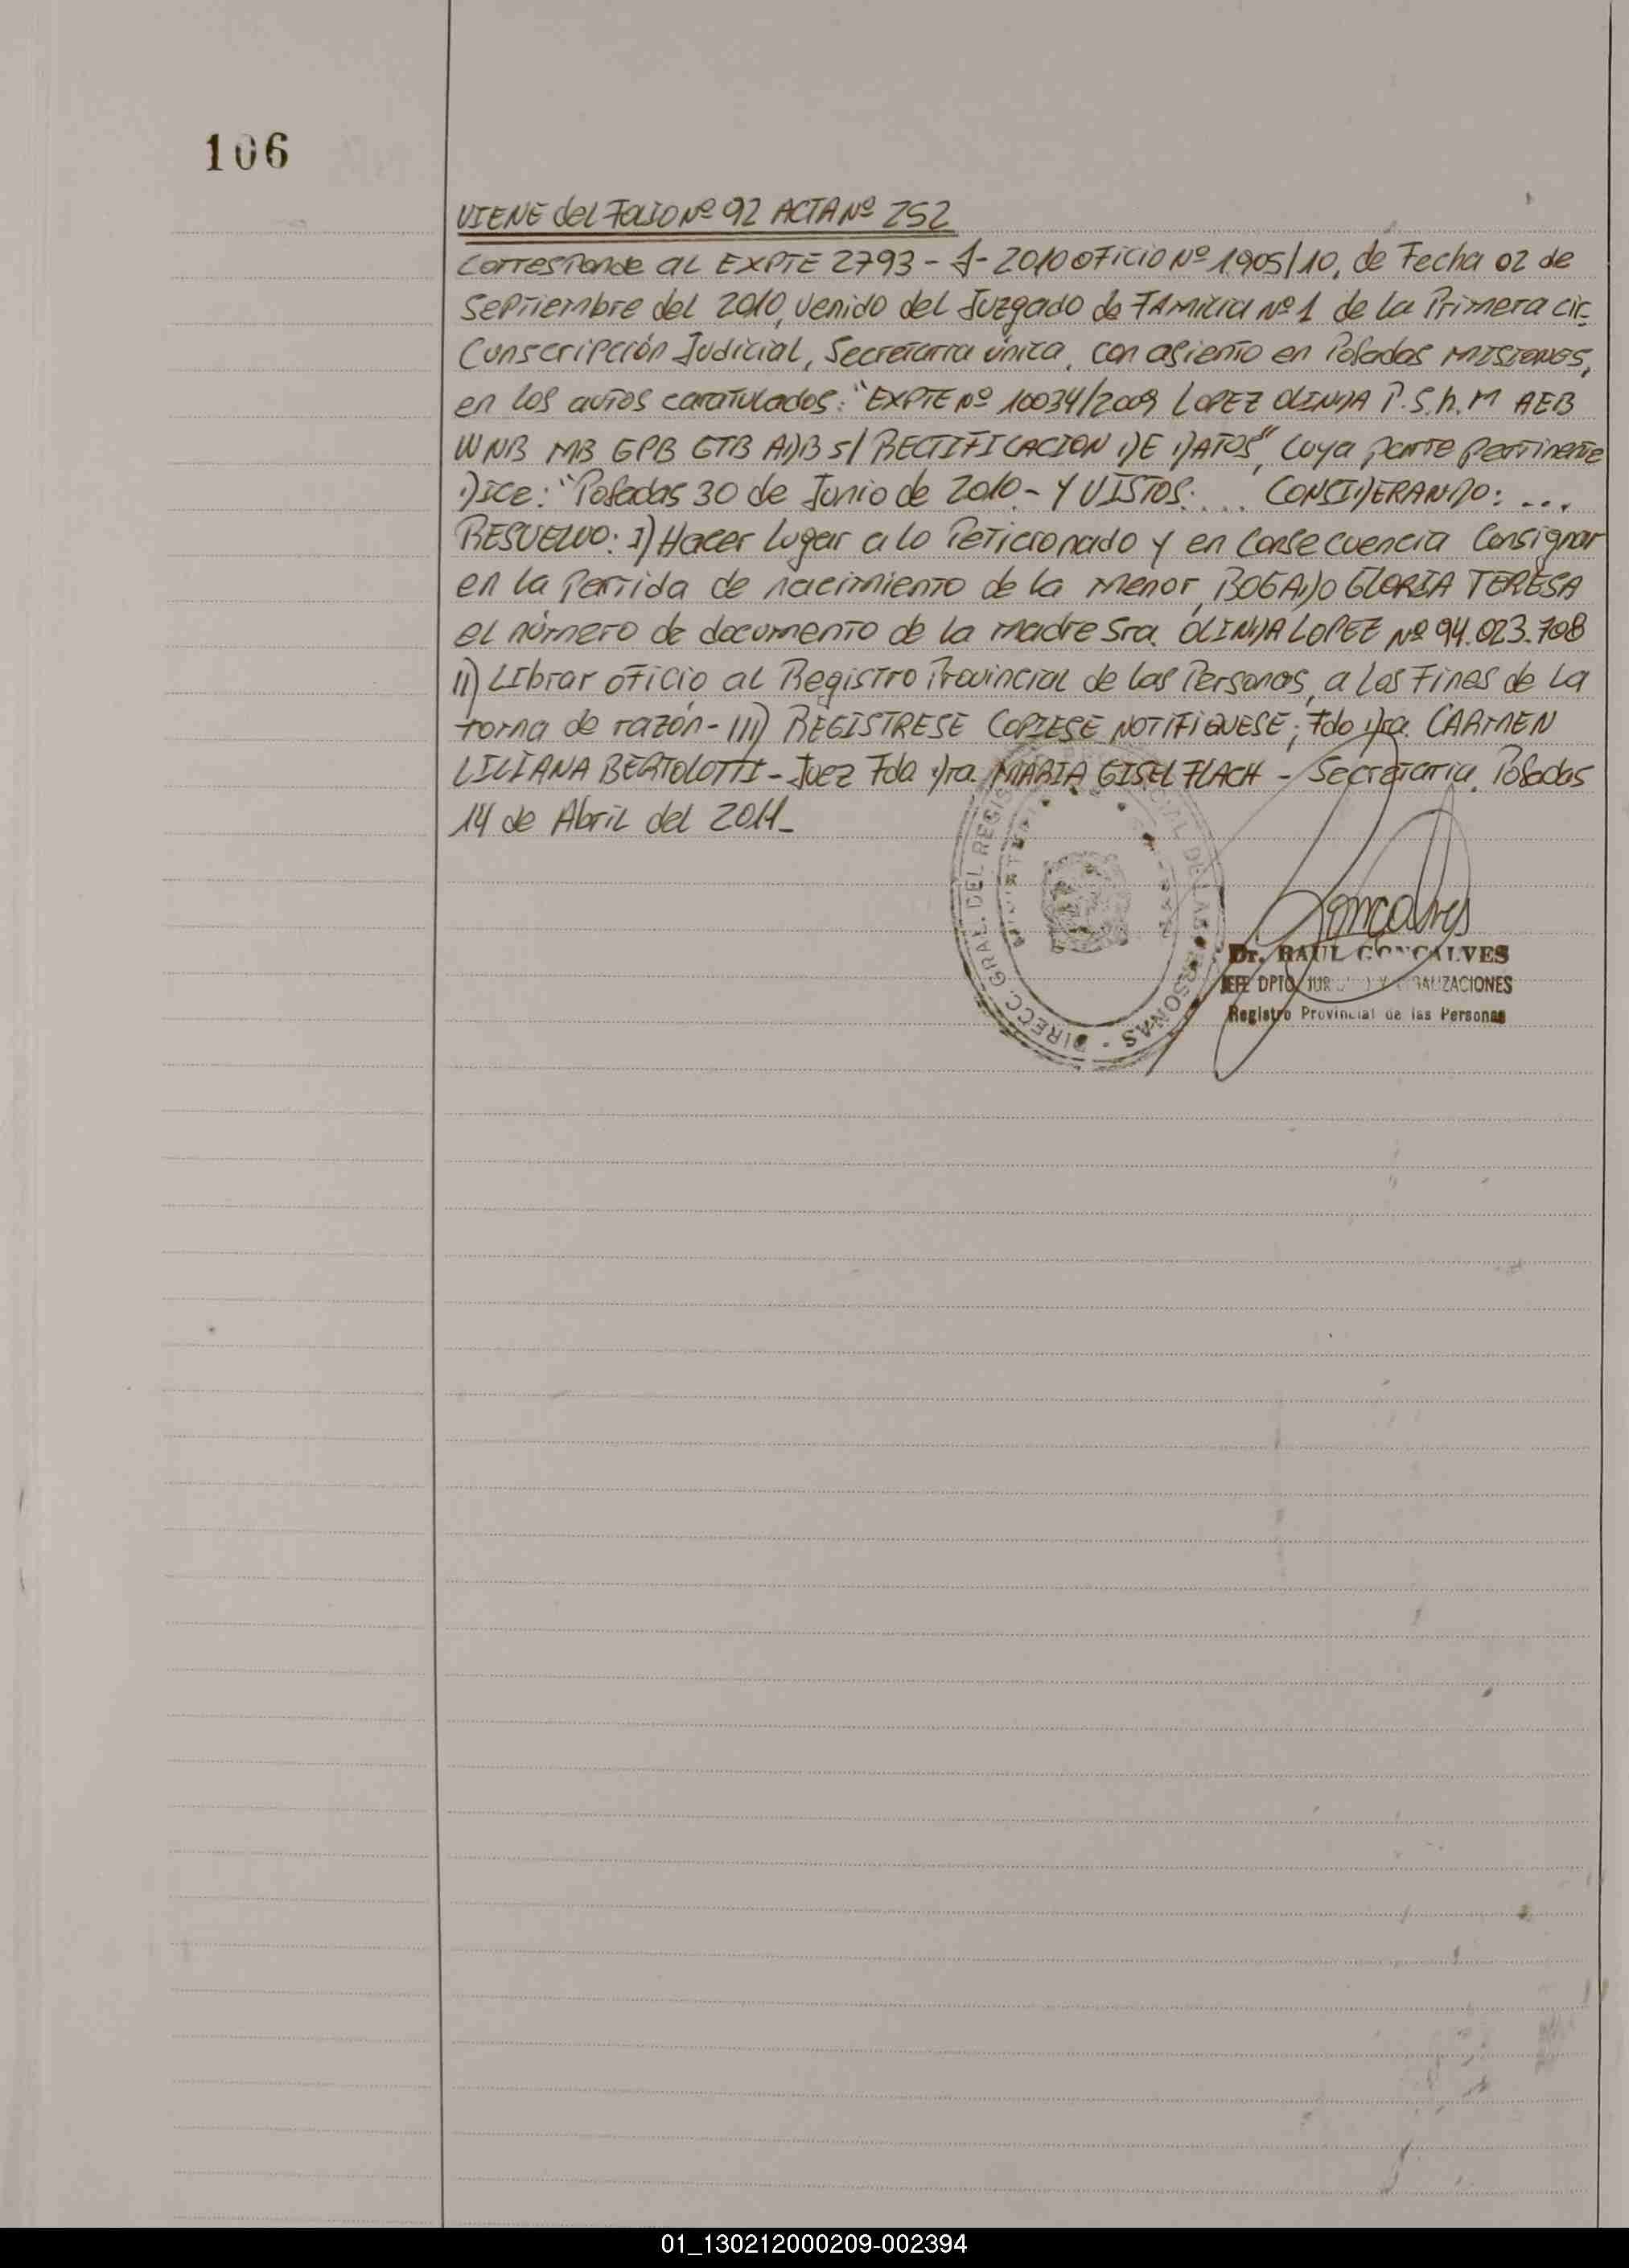 106
VIENE del Folio Nº 92 ACTA Nº 252
Corresponde al EXPTE 2793 - J - 2010 oficio Nº 1905/10, de Fecha 02 de
Septiembre del 2010, venido del Juzgado de Familia Nº 1 de la Primera cir-
cunscripción Judicial, Secretaria única, con asiento en Posadas MISIONES,
en los autos caratulados: "EXPTE Nº 10034/2009 LOPEZ OLINDA P.S.h.M AEB
WNB MB GPB GTB ADB s/ RECTIFICACION DE DATOS", cuya parte pertinente
Dice: "Posadas 30 de Junio de 2010.- Y VISTOS: ... CONSIDERANDO: ...
RESUELVO: I) Hacer lugar a lo Peticionado y en consecuencia consignar
en la Partida de nacimiento de la menor, BOGADO GLORIA TERESA
el número de documento de la madre Sra. OLINDA LOPEZ Nº 94.023.708
II) Librar oficio al Registro Provincial de las Personas, a los Fines de la
toma de razón - III) REGISTRESE COPIESE NOTIFIQUESE; Fdo Dra. CARMEN
LILIANA BERTOLOTTI - Juez Fdo Dra. MARIA GISEL FLACH - Secretaria. Posadas
14 de Abril del 2011_
DIRECC. GRAL. DEL REGIS DE LAS PERSONAS
Goncalves
Dr. RAUL GONCALVES
JEFE DPTO. Y
Registro Provincial de las Personas
01_130212000209-002394